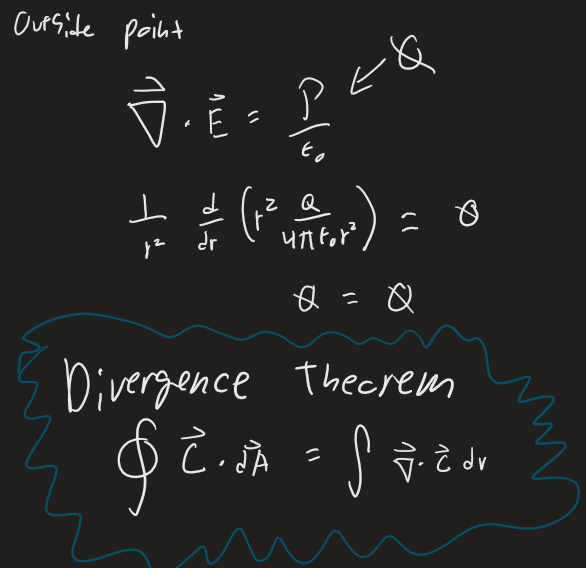 Outside point
∇⃗ · E⃗ = ρ/ε₀ ↙ 0
1/r² d/dr (r² Q/4πε₀r²) = 0
0 = 0
Divergence theorem
∮ C⃗ · dA⃗ = ∫ ∇⃗ · C⃗ dv